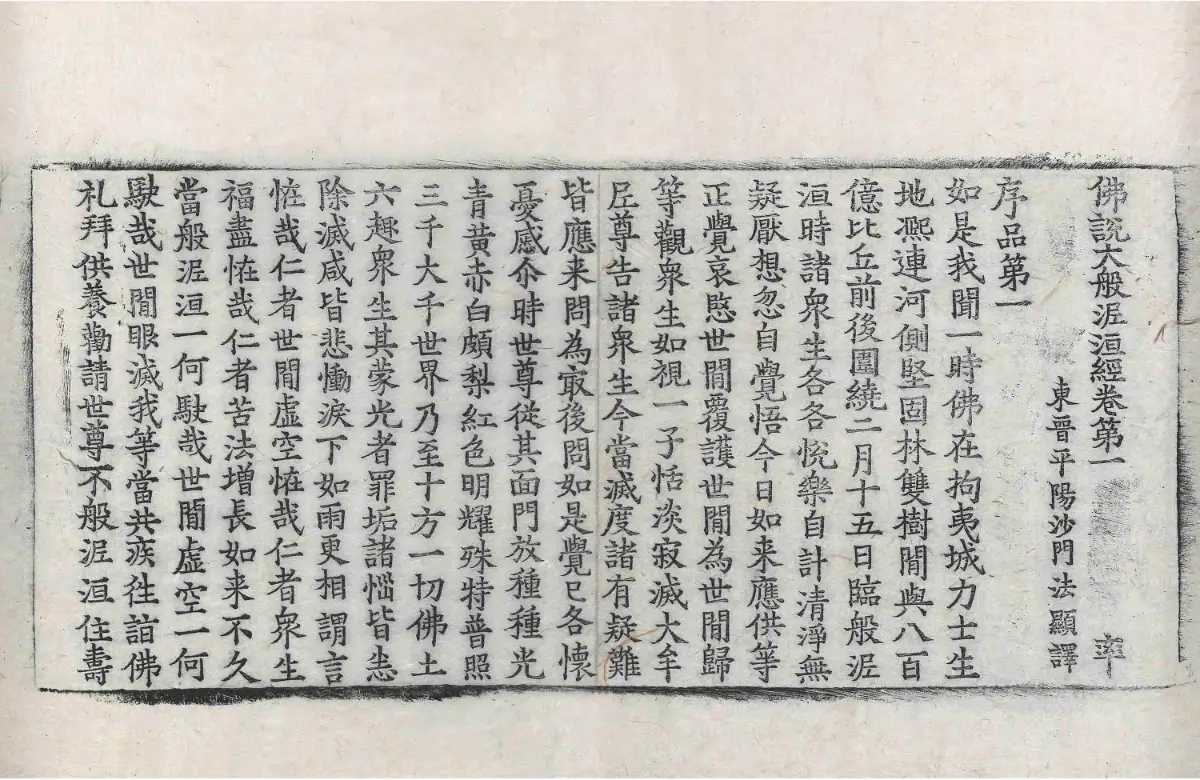 佛說大般泥洹經卷第一 率
東晉平陽沙門法顯譯
序品第一
如是我聞一時佛在拘夷城力士生
地凞連河側堅固林雙樹閒與八百
億比丘前後圍繞二月十五日臨般泥
洹時諸衆生各各悅樂自計清淨無
疑厭想忽自覺悟今日如来應供等
正覺哀愍世閒覆護世閒為世閒歸
等觀衆生如視一子恬淡寂滅大牟
尼尊告諸衆生今當滅度諸有疑難
皆應来問為㝡後問如是覺已各懷
憂慼尒時世尊從其面門放種種光
青黃赤白頗梨紅色明耀殊特普照
三千大千世界乃至十方一切佛土
六趣衆生其蒙光者罪垢諸惱皆悉
除滅咸皆悲慟淚下如雨更相謂言
恠哉仁者世閒虛空恠哉仁者衆生
福盡恠哉仁者苦法增長如来不久
當般泥洹一何駛哉世閒虛空一何
駛哉世閒眼滅我等當共疾往詣佛
礼拜供養勸請世尊不般泥洹住壽